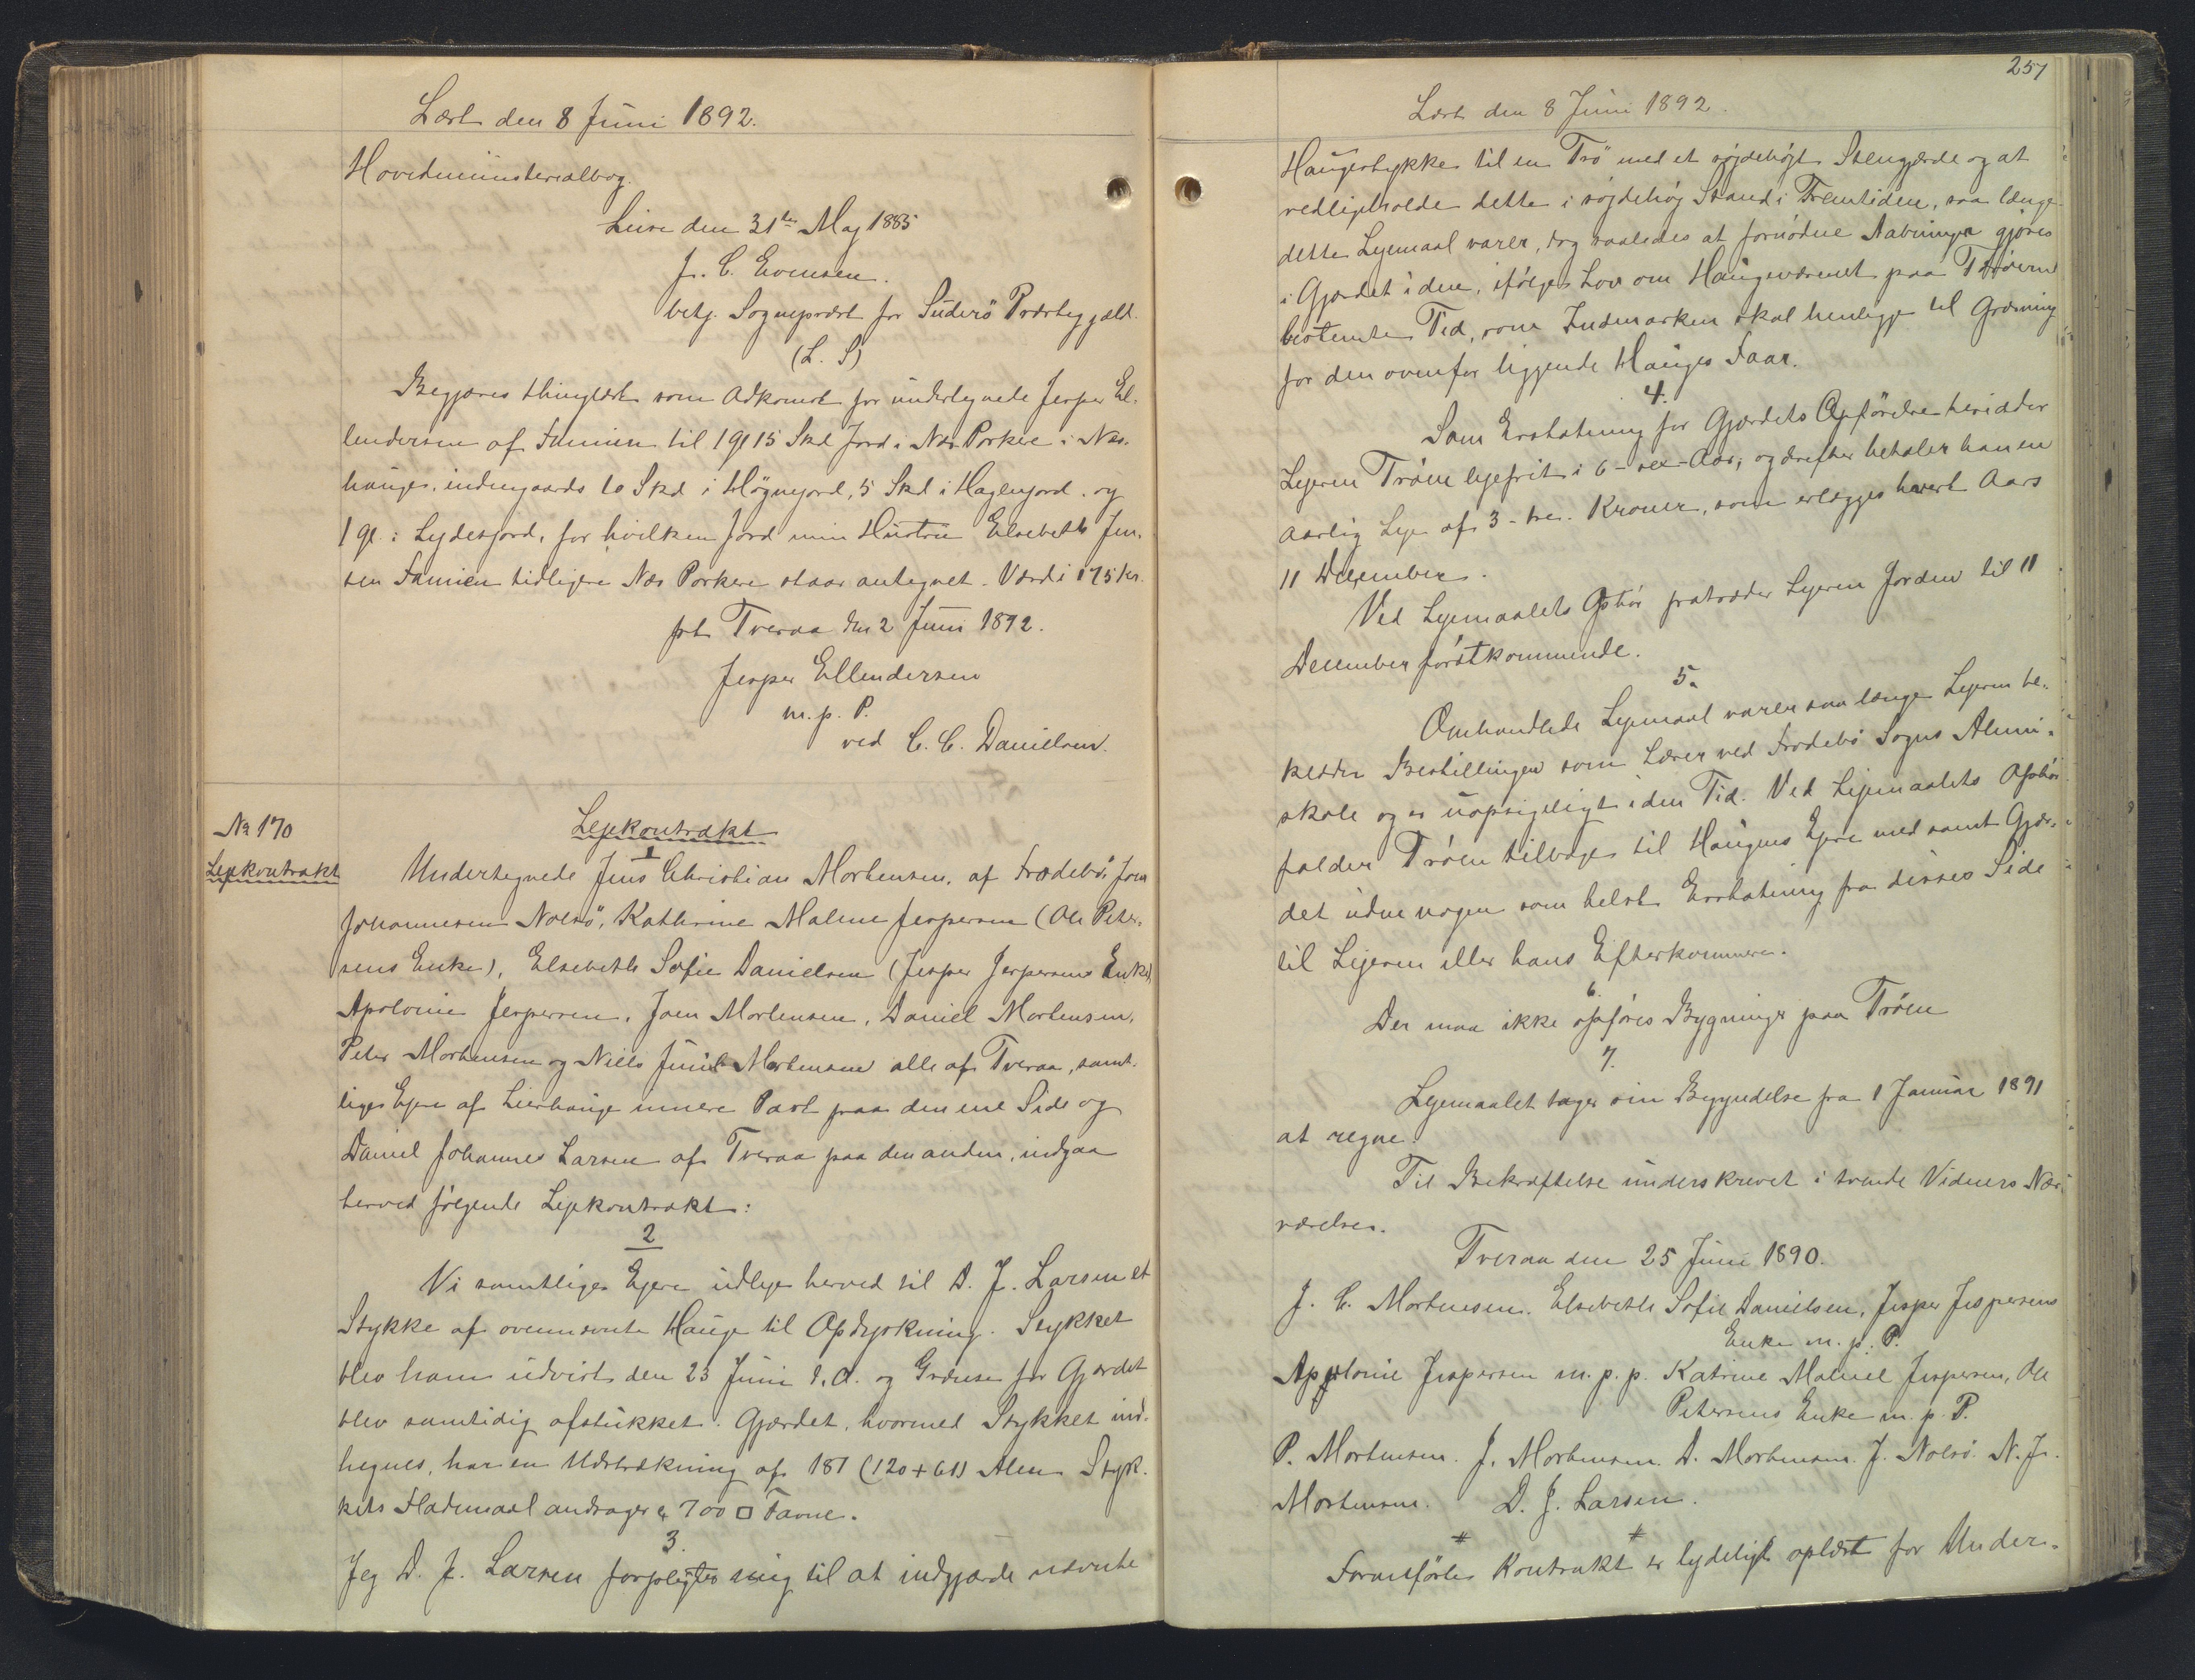 Læst den 8 Juni 1892.
Hovedministerialbog.
den 31te Maj 1885
J. C. Evensen.
betj. Sognepræst for Suderö Præstegjæld.
(L. S)
Begjæres thinglæst som Adkomst for undertegnede Jesper El-
lendersen af Famien til 1 gl 15 Skd Jord i Næs Porkere i Næs-
hauge, indengaards 10 Skd i Høgnejord, 5 Skd i Hagenjord. og
1 gl. i Lydesjord, for hvilken Jord min Hustru Elsebeth Jen-
sen Famien tidligere Næs Porkere staar antegnet. Værdi 175 kr.
pt. Tveraa den 2 Juni 1892.
Jesper Ellendersen
m. p. P.
ved C. C. Danielsen.
No 170
Lejekontrakt
Lejekontrakt
1
Undertegnede Jens Christian Mortensen, af Frodebö, Joen
Johannesen Nolsö, Kathrine Malene Jespersen (Ole Peter-
sens Enke), Elsebeth Sofie Danielsen (Jesper Jespersens Enke)
Apolonie Jespersen, Joen Mortensen, Daniel Mortensen,
Peter Mortensen og Niels Juul Mortensen alle af Tveraa, samt-
lige Ejere af Lierhauge innere Part paa den ene Side og
Daniel Johannes Larsen af Tveraa paa den anden, indgaa
herved følgende Lejekontrakt:
2
Vi samtlige Ejere udleje herved til D. J. Larsen et
Stykke af ovennævnte Hauge til Opdyrkning. Stykket
blev ham udvist den 23 Juni d. A. og Grænse for Gjærdet
blev samtidig afstukket. Gjærdet, hvormed Stykket ind-
hegnes, har en Udstrækning af 181 (120 + 61) Alen Styk-
kets Flademaal andrager c. 700 □ Favne.
3.
Jeg D. J. Larsen forpligter mig til at indgjærde nævnte
251
Læst den 8 Juni 1892.
Haugestykke til en Trö med et söjdehöjt Stengjerde og at
vedligeholde dette i söjdehøj Stand i Fremtiden, saa længe
dette Lejemaal varer, dog saaledes at fornödne Aabninger gjöres
i Gjærdet i den, ifølge Lov om Haugevæsenet paa Færöerne
bestemte Tid, som Indmarken skal henligge til Græsning
for den ovenfor liggende Hauges Faar.
4.
Som Erstatning for Gjærdets Opförelse besidder
Lejeren Tröen lejefrit i 6 - sex - Aar, og derefter betaler han en
aarlig Leje af 3 - tre - Kroner, som erlægges hvert Aars
11 December.
Ved Lejemaalets Ophör fratræder Lejeren Jorden til 11
December förstkommende.
5.
Omhandlede Lejemaal varer saa længe Lejeren be-
klæder Bestillingen som Lærer ved Frodebö Sogns Almu-
skole og er uopsigeligt i den Tid. Ved Lejemaalets Ophör
falder Tröen tilbage til Haugens Ejere med samt Gjær-
det uden nogen som helst Erstatning fra disses Side
til Lejeren eller hans Efterkommere.
6.
Der maa ikke opföres Bygninger paa Tröen
7.
Lejemaalet tager sin Begyndelse fra 1 Januar 1891
at regne.
Til Bekræftelse underskrevet i tvende Vidners Nær-
værelse.
Tveraa den 25 Juni 1890.
J. C. Mortensen. Elsebeth Sofie Danielsen, Jesper Jespersens
Enke m. p. P.
Appolonie Jespersen m. p. p. Katrine Malene Jespersen, Ole
Petersens Enke m. p. P.
P. Mortensen. J. Mortensen. D. Mortensen. J. Nolsö. N. J.
Mortensen. D. J. Larsen.
Foranförte Kontrakt er lydeligt oplæst for Under-